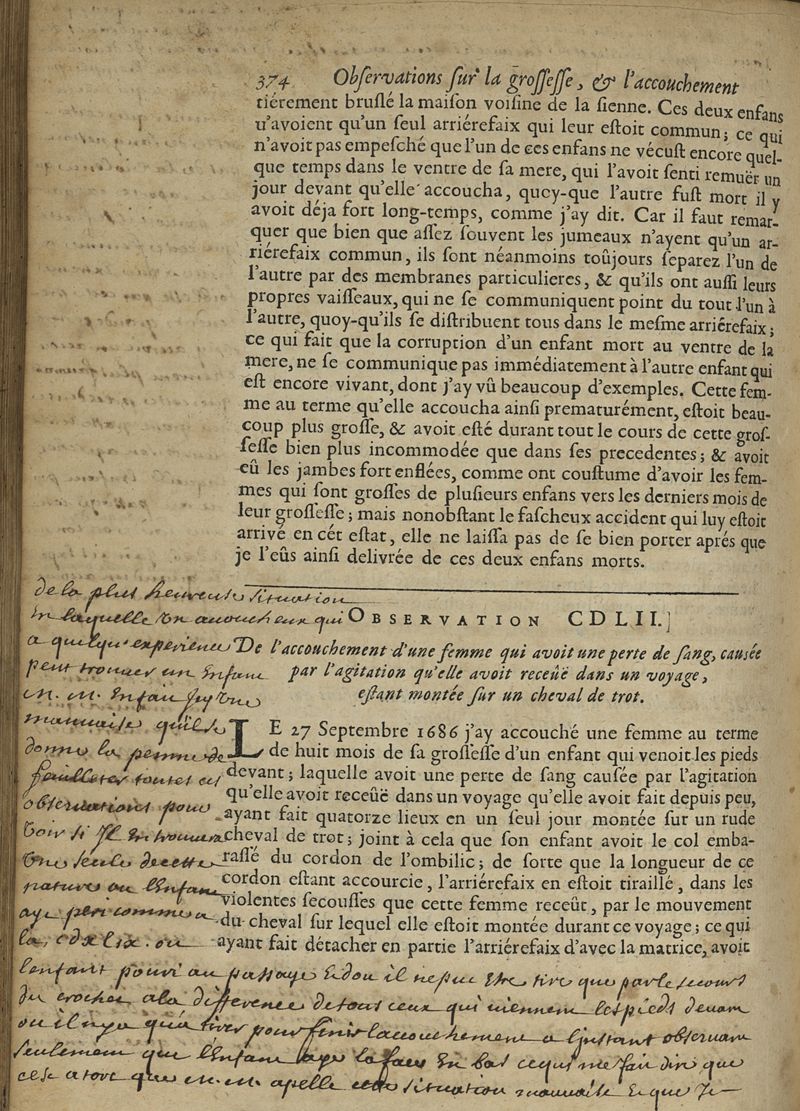 374 Obſervations ſur la groſſeſſe, & l'accouchement
tiérement bruſlé la maiſon voiſine de la ſienne. Ces deux enfans
n'avoient qu'un ſeul arriérefaix qui leur eſtoit commun; ce qui
n'avoit pas empeſché que l'un de ces enfans ne vécuſt encore quel-
que temps dans le ventre de ſa mere, qui l'avoit ſenti remuër un
jour devant qu'elle accoucha, quoy-que l'autre fuſt mort il y
avoit déja fort long-temps, comme j'ay dit. Car il faut remar-
quer que bien que aſſez ſouvent les jumeaux n'ayent qu'un ar-
riérefaix commun, ils ſont néanmoins toûjours ſeparez l'un de
l'autre par des membranes particulieres, & qu'ils ont auſſi leurs
propres vaiſſeaux, qui ne ſe communiquent point du tout l'un à
l'autre, quoy-qu'ils ſe diſtribuent tous dans le meſme arriérefaix;
ce qui fait que la corruption d'un enfant mort au ventre de la
mere, ne ſe communique pas immédiatement à l'autre enfant qui
eſt encore vivant, dont j'ay vû beaucoup d'exemples. Cette fem-
me au terme qu'elle accoucha ainſi prematurément, eſtoit beau-
coup plus groſſe, & avoit eſté durant tout le cours de cette groſ-
ſeſſe bien plus incommodée que dans ſes precedentes; & avoit
eû les jambes fort enflées, comme ont couſtume d'avoir les fem-
mes qui ſont groſſes de pluſieurs enfans vers les derniers mois de
leur groſſeſſe; mais nonobſtant le faſcheux accident qui luy eſtoit
arrivé en cét eſtat, elle ne laiſſa pas de ſe bien porter aprés que
je l'eûs ainſi delivrée de ces deux enfans morts.
OBSERVATION CDLII.
De l'accouchement d'une femme qui avoit une perte de ſang, cauſée
par l'agitation qu'elle avoit receüë dans un voyage,
eſtant montée ſur un cheval de trot.
LE 27 Septembre 1686 j'ay accouché une femme au terme
de huit mois de ſa groſſeſſe d'un enfant qui venoit les pieds
devant; laquelle avoit une perte de ſang cauſée par l'agitation
qu'elle avoit receüë dans un voyage qu'elle avoit fait depuis peu,
ayant fait quatorze lieux en un ſeul jour montée ſur un rude
cheval de trot; joint à cela que ſon enfant avoit le col emba-
raſſé du cordon de l'ombilic; de ſorte que la longueur de ce
cordon eſtant accourcie, l'arriérefaix en eſtoit tiraillé, dans les
violentes ſecouſſes que cette femme receût, par le mouvement
du cheval ſur lequel elle eſtoit montée durant ce voyage; ce qui
ayant fait détacher en partie l'arriérefaix d'avec la matrice, avoit
de la plus heureuse situation
in laquelle un accoucheur qui
a quelqu'experience
peut trouver un Enfant
donne la peine de
feuilleter toutes ces
observations pour
Voir
nature ou l'Enfant
aye peri comme a
la, CDXLIX. ou
l'enfant pouri au passage Edou il ne put Etre tiré que par le secours
du crochet a la difference de tous ceux qui viennent les pieds devant
ou il n'y a qu'a tirer pour finir l'accouchement a l'instant observant
seulement que l'Enfant aye la face En bas ce qui me fait dire que
cest a tort que m. m. apelle cette situation mauvaise E que Je